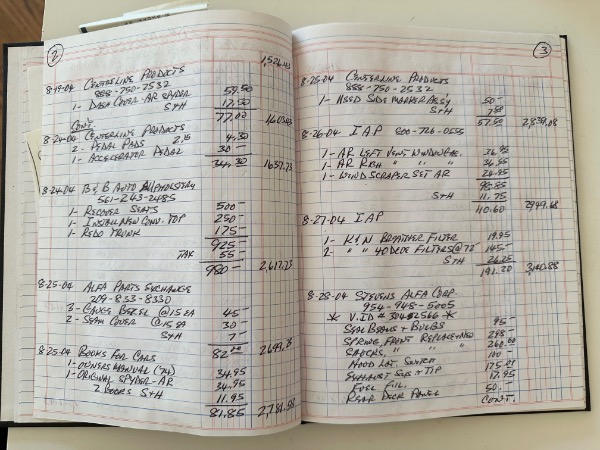 2
1,526.43
8-19-04 CENTERLINE PRODUCTS
888-750-2532
1- DASH COVER-AR SPYDER 59.50
S+H 17.50
77.00 1603.43
CONT.
8-24-04 CENTERLINE PRODUCTS
2- PEDAL PADS 2.15 4.30
1- ACCELERATOR PEDAL 30-
34.30 1637.73
8-24-04 B & B AUTO UPHOLSTERY
561-243-2485
1- RECOVER SEATS 500-
1- INSTALL NEW CONV. TOP 250-
1- REDO TRUNK 175-
925-
TAX 55-
980- 2,617.73
8-25-04 ALFA PARTS EXCHANGE
209-833-8330
3- GAUGE BEZEL @ 15 EA 45-
2- SEAM COVER @ 15 EA 30-
S+H 7-
82.00 2,699.73
8-25-04 BOOKS FOR CARS
1- OWNERS MANUAL (74) 34.95
1- ORIGINAL SPYDER-AR 34.95
2 BOOKS S+H 11.95
81.85 2,781.58
3
8-25-04 CENTERLINE PRODUCTS
888-750-2532
1- USED SIDE MARKER ASS'Y 50-
S+H 7.50
57.50 2,839.08
8-26-04 IAP 800-726-0555
1- AR LEFT VENT WINDOW GAS. 36.95
1- AR RIGH " " 36.95
1- WIND SCRAPER SET AR 24.95
98.85
S+H 11.75
110.60 2949.68
8-27-04 IAP
1- K&N BREATHER FILTER 19.95
2- " " 40 DCOE FILTERS @ 72 145-
S+H 26.25
191.20 3,140.88
8-28-04 STEVENS ALFA CORP.
954-945-5005
* V.ID # *
SEAL BEAMS + BULBS 95-
SPRING, FRONT REPLACE + NEW 298-
SHOCKS, " " 260.00
HOOD LAT. SWITCH 100-
EXHAUST SYS + TIP 175.21
FUEL FIL. 17.95
REAR DECK PANEL 50.-
CONT.